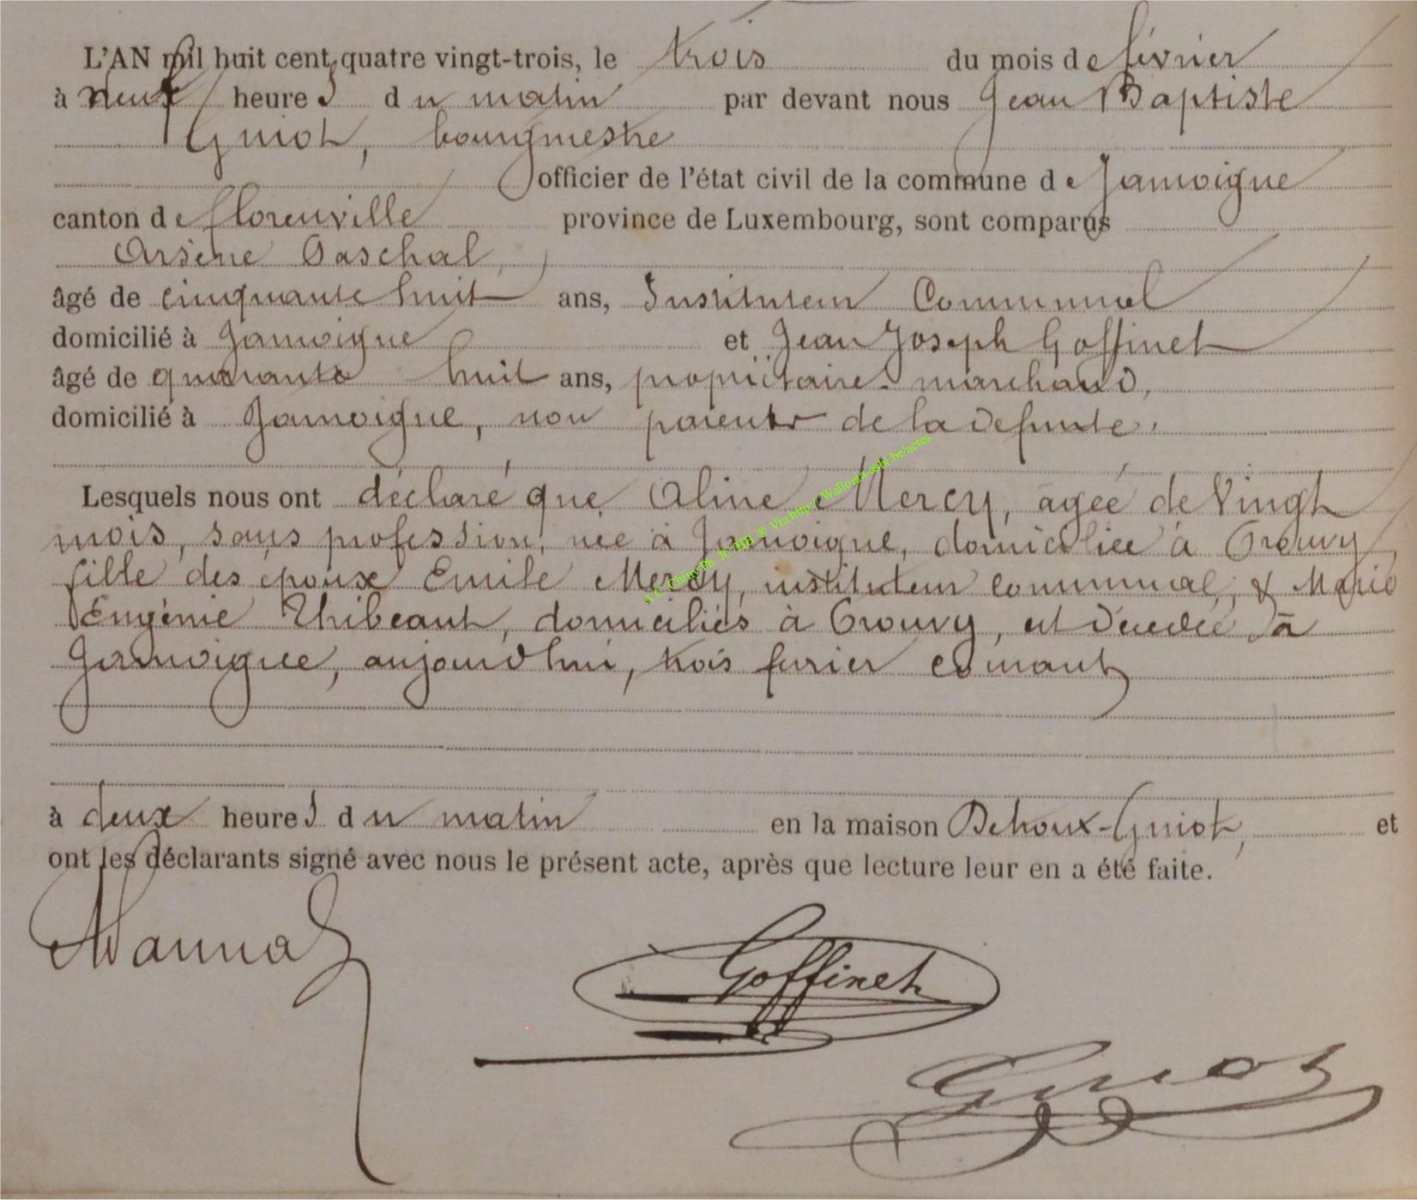 L'AN mil huit cent quatre vingt-trois, le trois du mois de février
à neuf heures du matin par devant nous Jean Baptiste
Guiot, bourgmestre
officier de l'état civil de la commune de Jamoigne
canton de florenville province de Luxembourg, sont comparus
Arsène Paschal,
âgé de cinquante huit ans, Instituteur Communal
domicilié à Jamoigne et Jean Joseph Goffinet
âgé de quarante huit ans, propriétaire marchand,
domicilié à Jamoigne, non parents de la défunte.
Lesquels nous ont déclaré que Aline Mercy, agée de Vingt
mois, sans profession, née à Jamoigne, domiciliée à Grouvy,
fille des époux Emile Mercy, instituteur communal, & Marie
Eugénie Thibeaut, domiciliés à Grouvy, est décédée à
Jamoigne, aujourd'hui, trois furier courant
à deux heures du matin en la maison Dehoux-Guiot, et
ont les déclarants signé avec nous le présent acte, après que lecture leur en a été faite.
Goffinet
Guiot